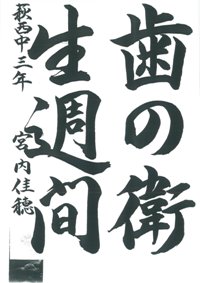 歯の衛
生週間
萩西中三年 宮内佳穂